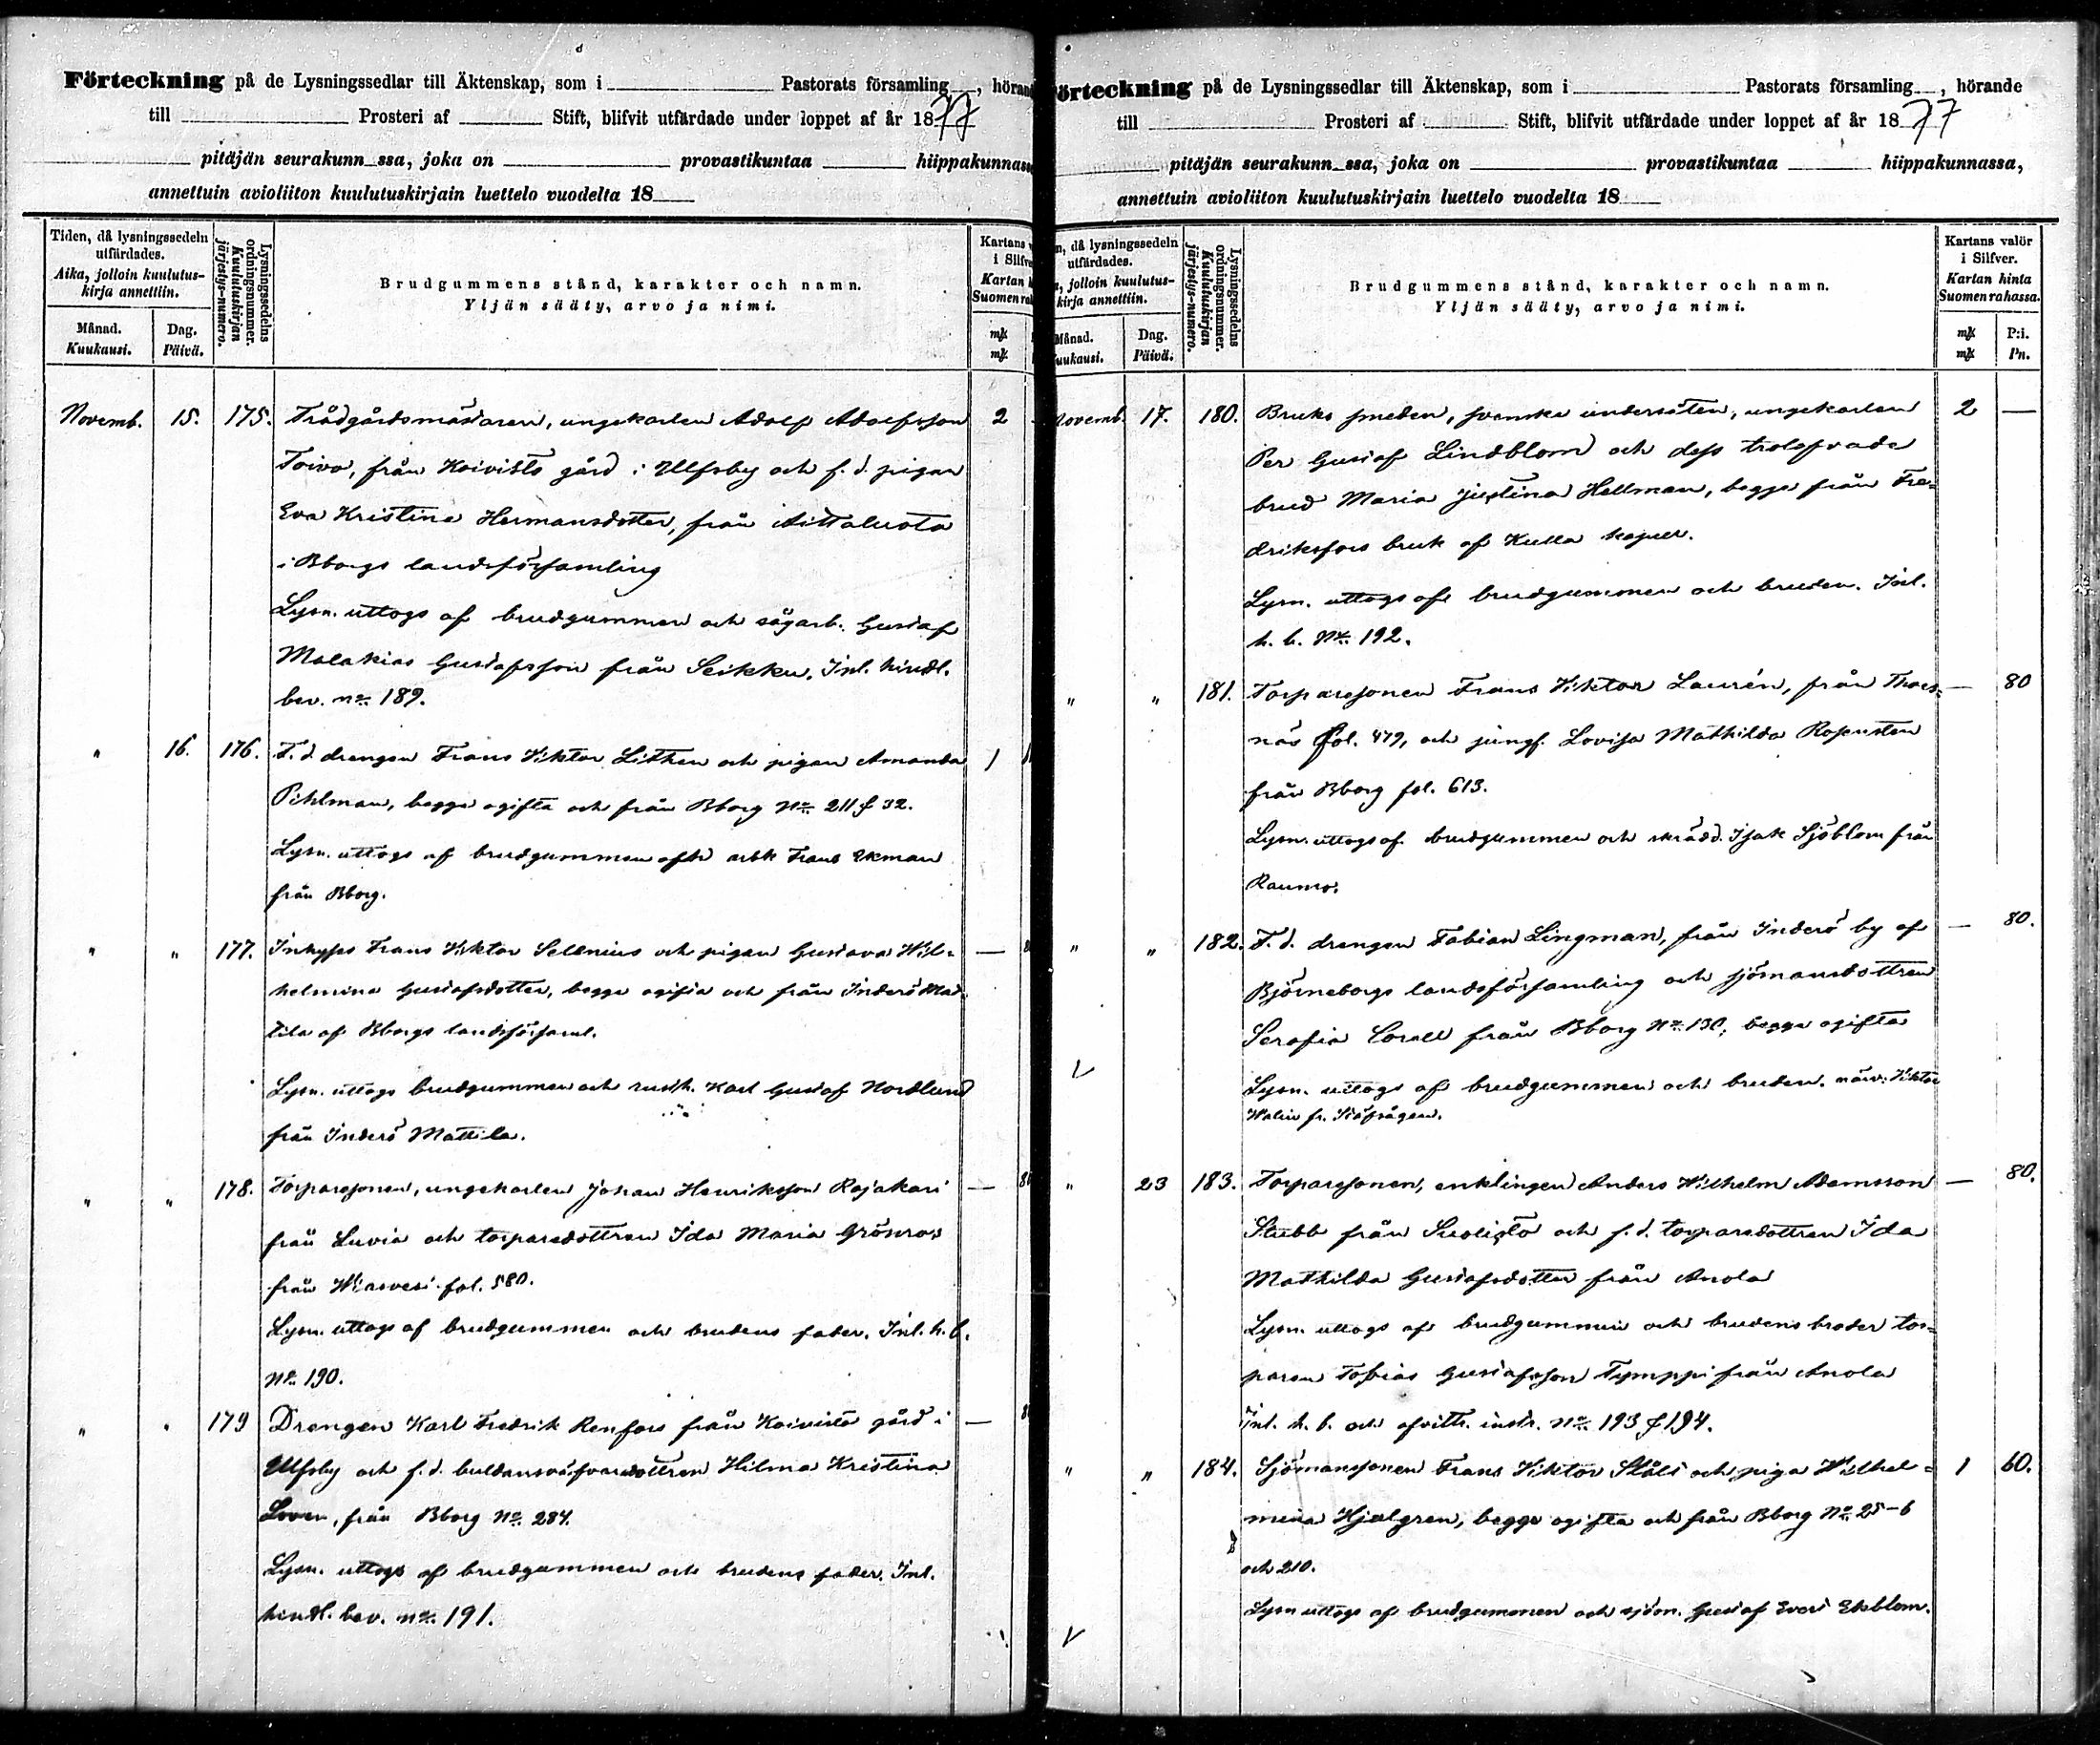 Förteckning på de Lysningssedlar till Äktenskap, som i Pastorats församling, hörande
till Prosteri af Stift, blifvit utfärdade under loppet af år 1877
pitäjän seurakunn ssa, joka on provastikuntaa hiippakunnassa
annettuin avioliiton kuulutuskirjain luettelo vuodelta 18
Tiden, då lysningssedeln
utfärdades.
Aika, jolloin kuulutus-
kirja annettiin.
Månad.
Kuukausi.
Dag.
Päivä.
Lysningssedelns
ordningsnummer.
Kuulutuskirjan
järjestys-numero.
Brudgummens stånd, karakter och namn.
Yljän sääty, arvo ja nimi.
Kartans
i Silfver
Kartan
Suomen
mk
mk
Novemb. 15. 175. Trädgårdsmästaren, ungekarlen Adolf Adolfsson 2
Toivo, från Koivisto gård i Ulfsby och f. d. pigan
Eva Kristina Hermansdotter, från Aittaluota
i Bborgs landsförsamling
Lysn. uttogs af brudgummen och sågarb. Gustaf
Malakias Gustafsson från Seikku. Inl. hindl.
bev. no 189.
" 16. 176. F. d. drengen Frans Viktor Lithen och pigan Amanda 1
Pihlman, begge ogifta och från Bborg No 211 & 32.
Lysn. uttogs af brudgummen och arbk Frans Ekman
från Bborg.
" " 177. Inhyses Frans Viktor Sellenius och pigan Gustava Wil-
helmina Gustafsdotter, begge ogifta och från Inderö Mat-
tila af Bborgs landsförsaml.
Lysn. uttogs brudgummen och rusth. Karl Gustaf Nordlund
från Inderö Mattila.
" " 178. Torparesonen, ungekarlen Johan Henriksson Rajakari —
från Luvia och torparedottren Ida Maria Grönroos
från Wiasvesi fol. 580.
Lysn. uttogs af brudgummen och brudens fader. Inl. h. b.
No 190.
" " 179 Drengen Karl Fredrik Renfors från Koivisto gård i —
Ulfsby och f. d. buldansväfvaredottren Hilma Kristina
Loven, från Bborg No 284.
Lysn. uttogs af brudgummen och brudens fader. Inl.
hindl. bev. no 191.
Förteckning på de Lysningssedlar till Äktenskap, som i Pastorats församling, hörande
till Prosteri af Stift, blifvit utfärdade under loppet af år 1877
pitäjän seurakunn ssa, joka on provastikuntaa hiippakunnassa,
annettuin avioliiton kuulutuskirjain luettelo vuodelta 18
n, då lysningssedeln
utfärdades.
jolloin kuulutus-
kirja annettiin.
Månad.
uukausi.
Dag.
Päivä.
Lysningssedelns
ordningsnummer.
Kuulutuskirjan
järjestys-numero.
Brudgummens stånd, karakter och namn.
Yljän sääty, arvo ja nimi.
Kartans valör
i Silfver.
Kartan hinta
Suomen rahassa.
mk P:i.
mk Pn.
Novemb. 17. 180. Bruks smeden, svenska undersåten, ungekarlen 2 —
Per Gustaf Lindblom och dess trolofvade
brud Maria Justina Hellman, begge från Fre-
driksfors bruk af Kulla kapell.
Lysn. uttogs af brudgummen och bruden. Inl.
h. b. No 192.
" " 181. Torparesonen Frans Viktor Laurén, från Thors- — 80
näs fol. 479, och jungf. Lovisa Mathilda Roposten
från Bborg fol. 613.
Lysn. uttogs af brudgummen och skrädd. Isak Sjöblom från
Raumo.
" " 182. F. d. drengen Fabian Lingman, från Inderö by af — 80.
Björneborgs landsförsamling och sjömansdottren
Serafia Corell från Bborg No 130, begge ogifta
Lysn. uttogs af brudgummen och bruden. närv. Viktor
Walin fr.
" 23 183. Torparesonen, enklingen Anders Wilhelm Adamsson — 80.
Stubb från Suolisto och f. d. torparedottren Ida
Mathilda Gustafsdotter från Anola
Lysn. uttogs af brudgummen och brudens broder tor-
paren Tobias Gustafsson Tymppi från Anola
Inl. h. b. och afvittr. instr. No 193 & 194.
" " 184. Sjömanssonen Frans Viktor Ståhl och piga Wilhel- 1 60.
mina Hjelgren, begge ogifta och från Bborg No 25-6
och 210.
Lysn uttogs af brudgummen och sjöm. Gustaf Evert Ekblom.